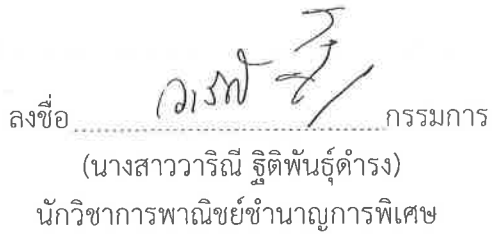 ลงชื่อ กรรมการ
(นางสาววาริณี ฐิติพันธุ์ดำรง)
นักวิชาการพาณิชย์ชำนาญการพิเศษ